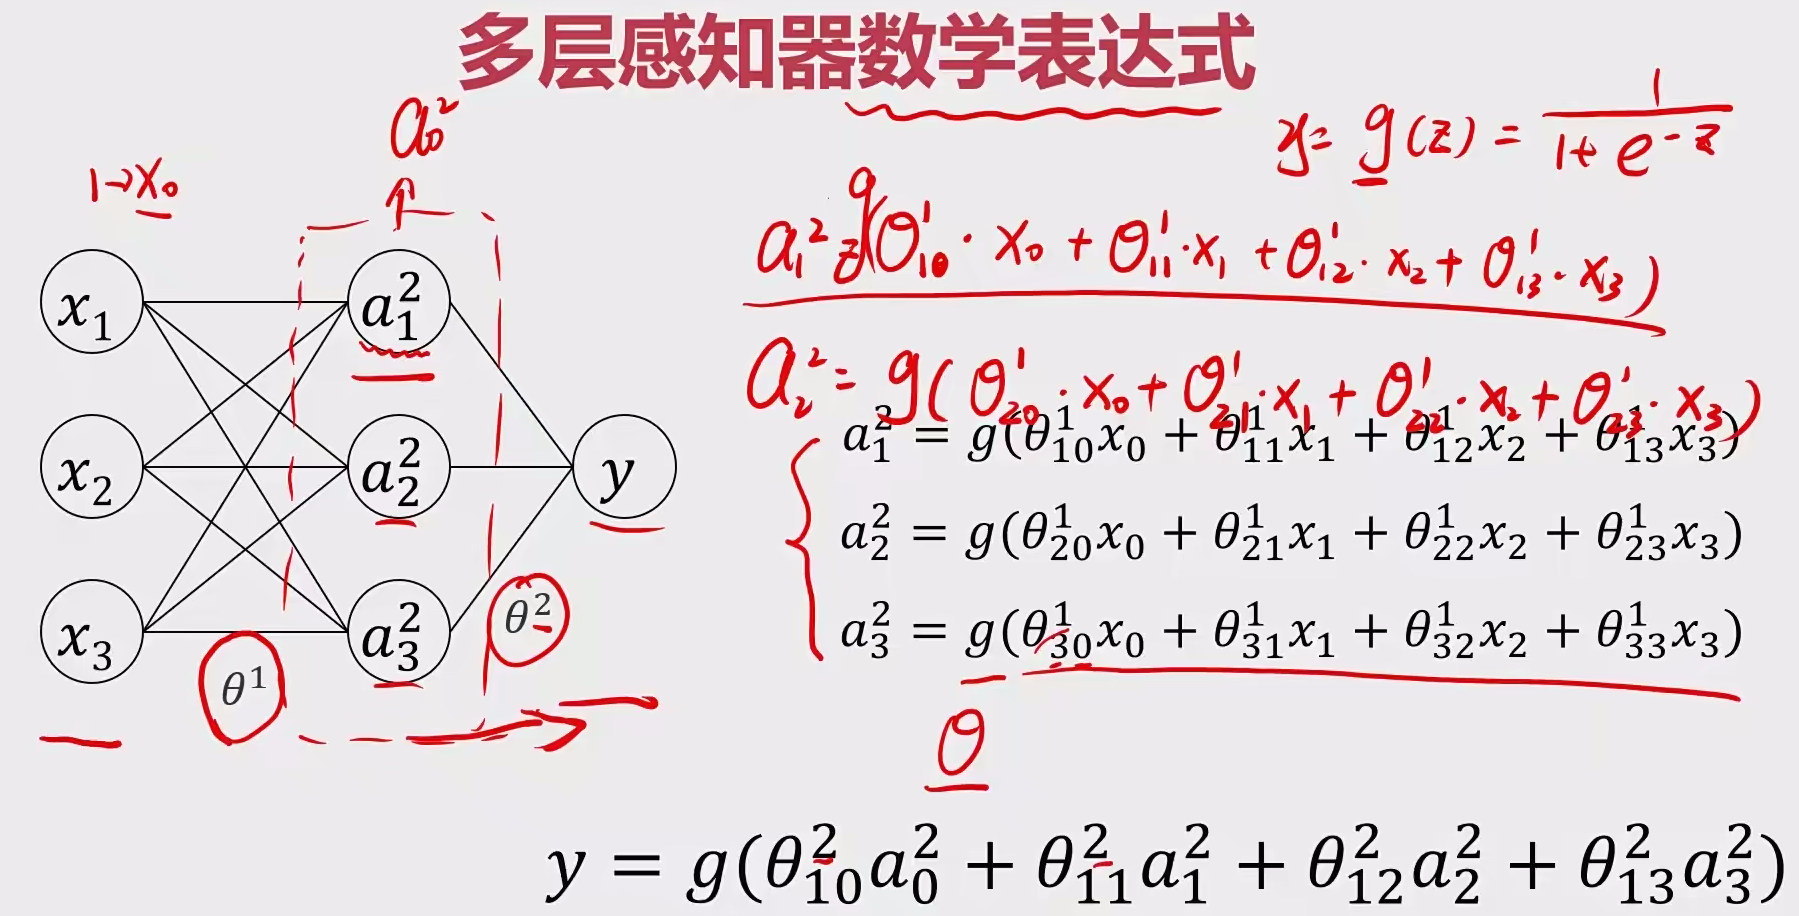 多层感知器数学表达式
a₀²
1→x₀
y = g(z) = 1/(1+e^{-z})
a₁² = g(θ₁₀¹·x₀ + θ₁₁¹·x₁ + θ₁₂¹·x₂ + θ₁₃¹·x₃)
a₂² = g(θ₂₀¹·x₀ + θ₂₁¹·x₁ + θ₂₂¹·x₂ + θ₂₃¹·x₃)
x₁
a₁²
x₂
a₂²
y
x₃
a₃²
θ¹
θ²
a₁² = g(θ₁₀¹x₀ + θ₁₁¹x₁ + θ₁₂¹x₂ + θ₁₃¹x₃)
a₂² = g(θ₂₀¹x₀ + θ₂₁¹x₁ + θ₂₂¹x₂ + θ₂₃¹x₃)
a₃² = g(θ₃₀¹x₀ + θ₃₁¹x₁ + θ₃₂¹x₂ + θ₃₃¹x₃)
θ
y = g(θ₁₀²a₀² + θ₁₁²a₁² + θ₁₂²a₂² + θ₁₃²a₃²)